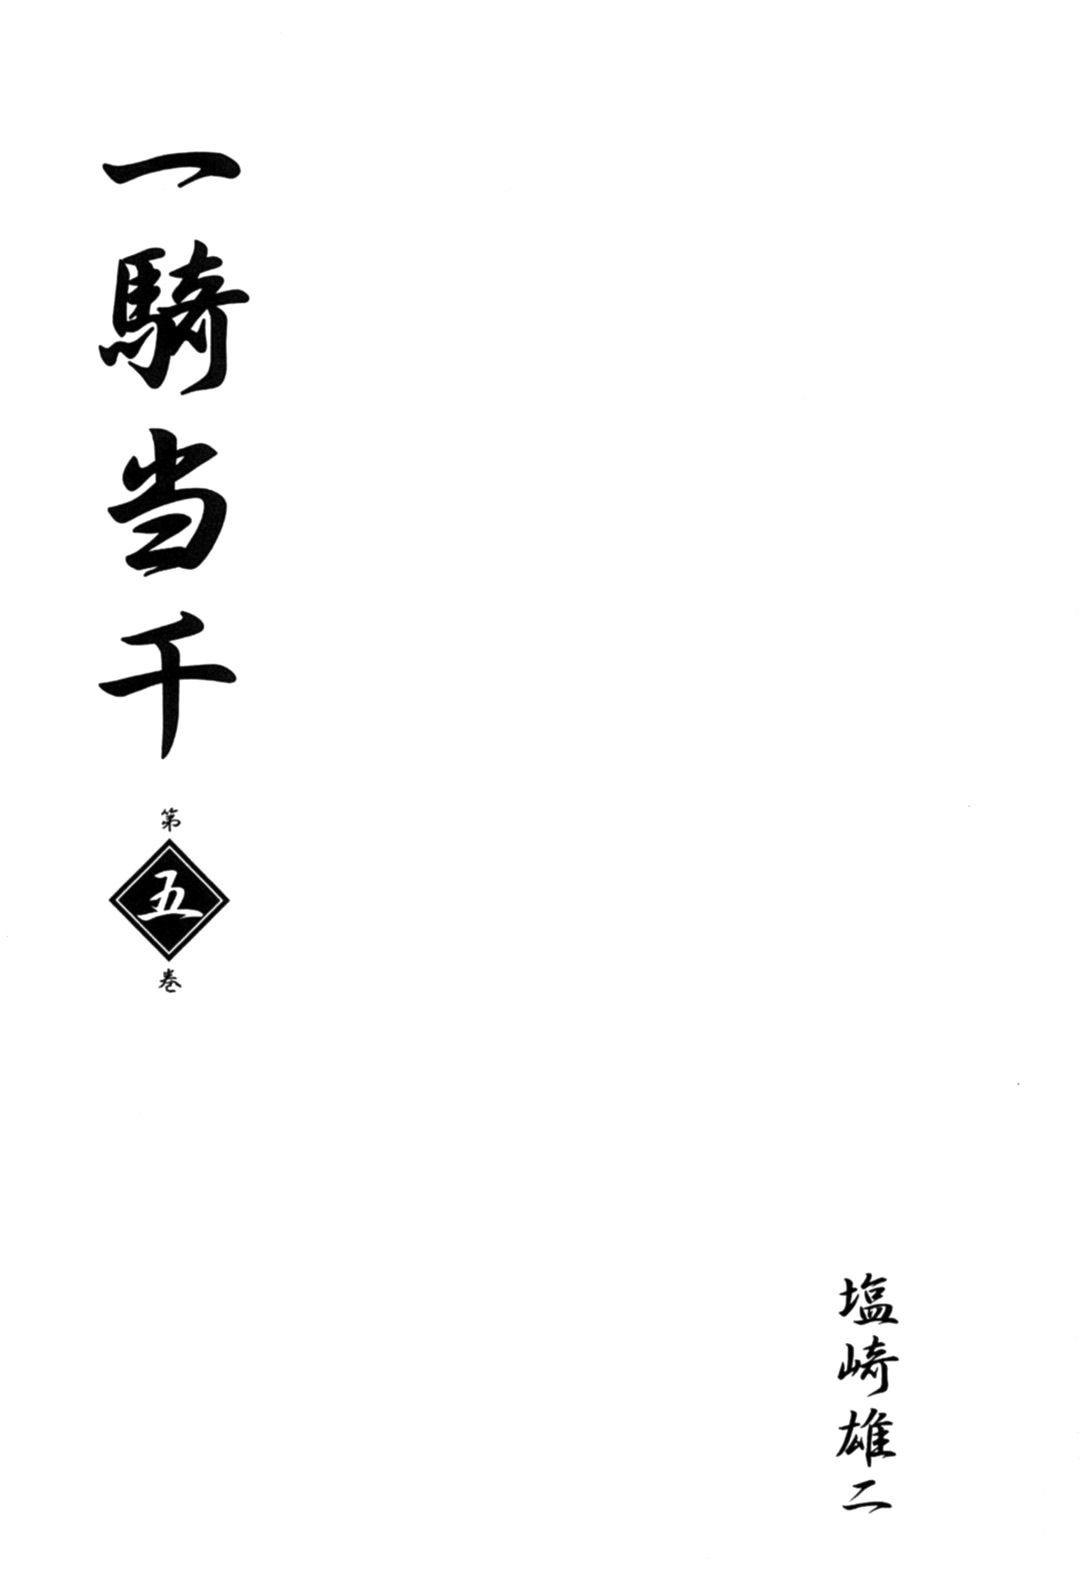 一騎当千
第五巻
塩崎雄二